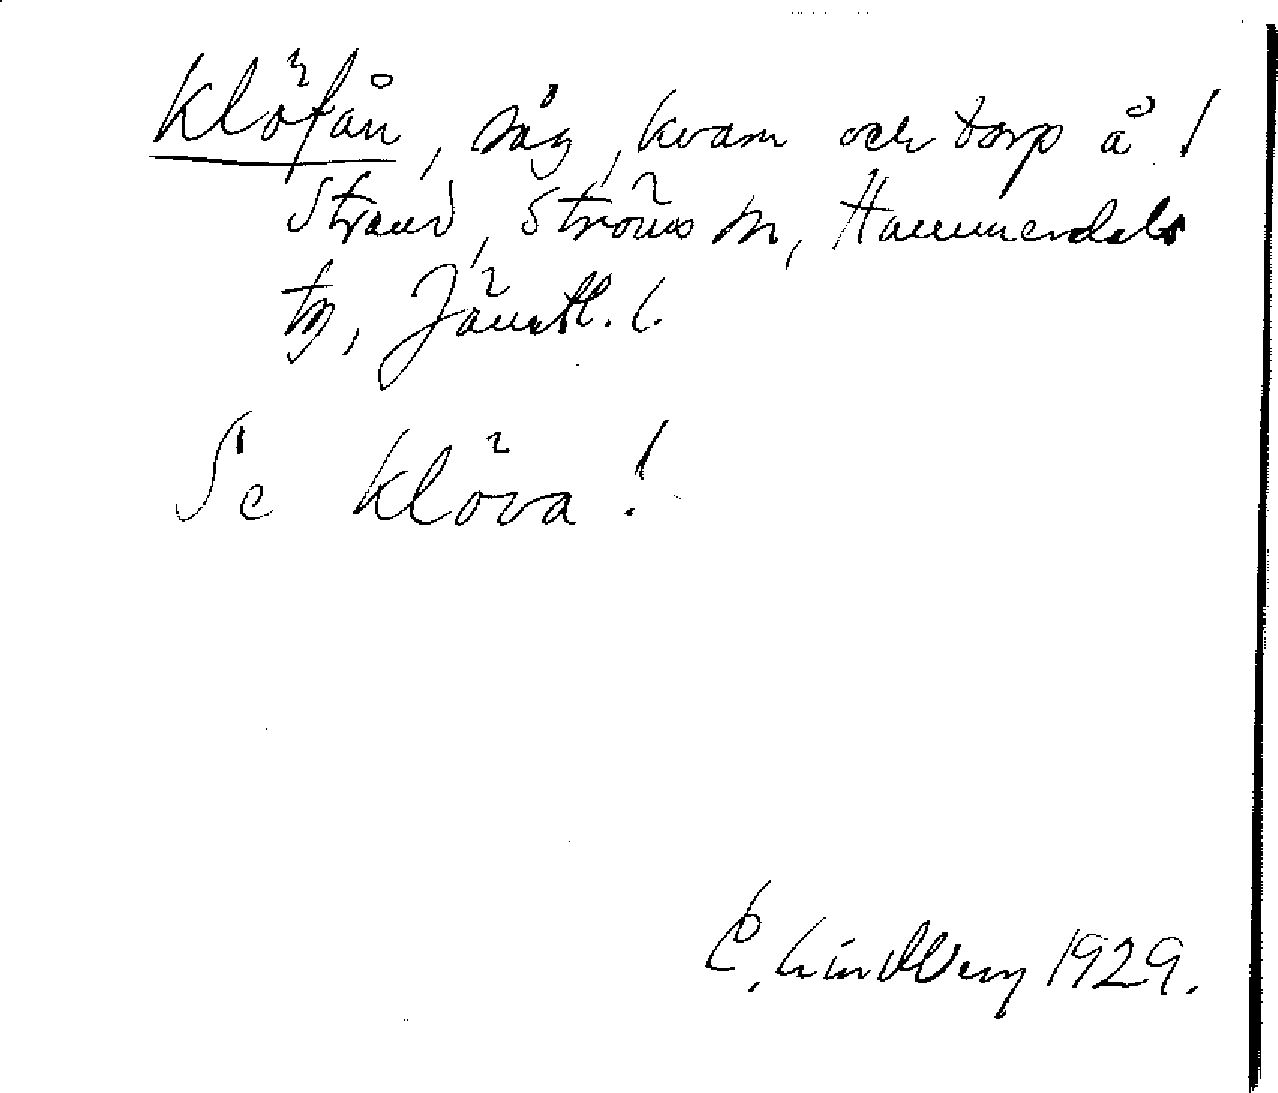 Klöfån, såg, kvarn och torp å
Strand, Ströms sn, Hammerdals
tg, Jämtl. l.
Se Klöva!
E. Lindberg 1929.